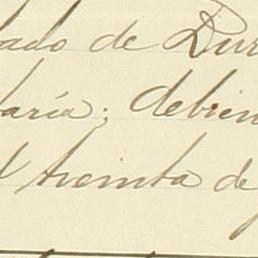 ado de Dur
aría; debien
l treinta de